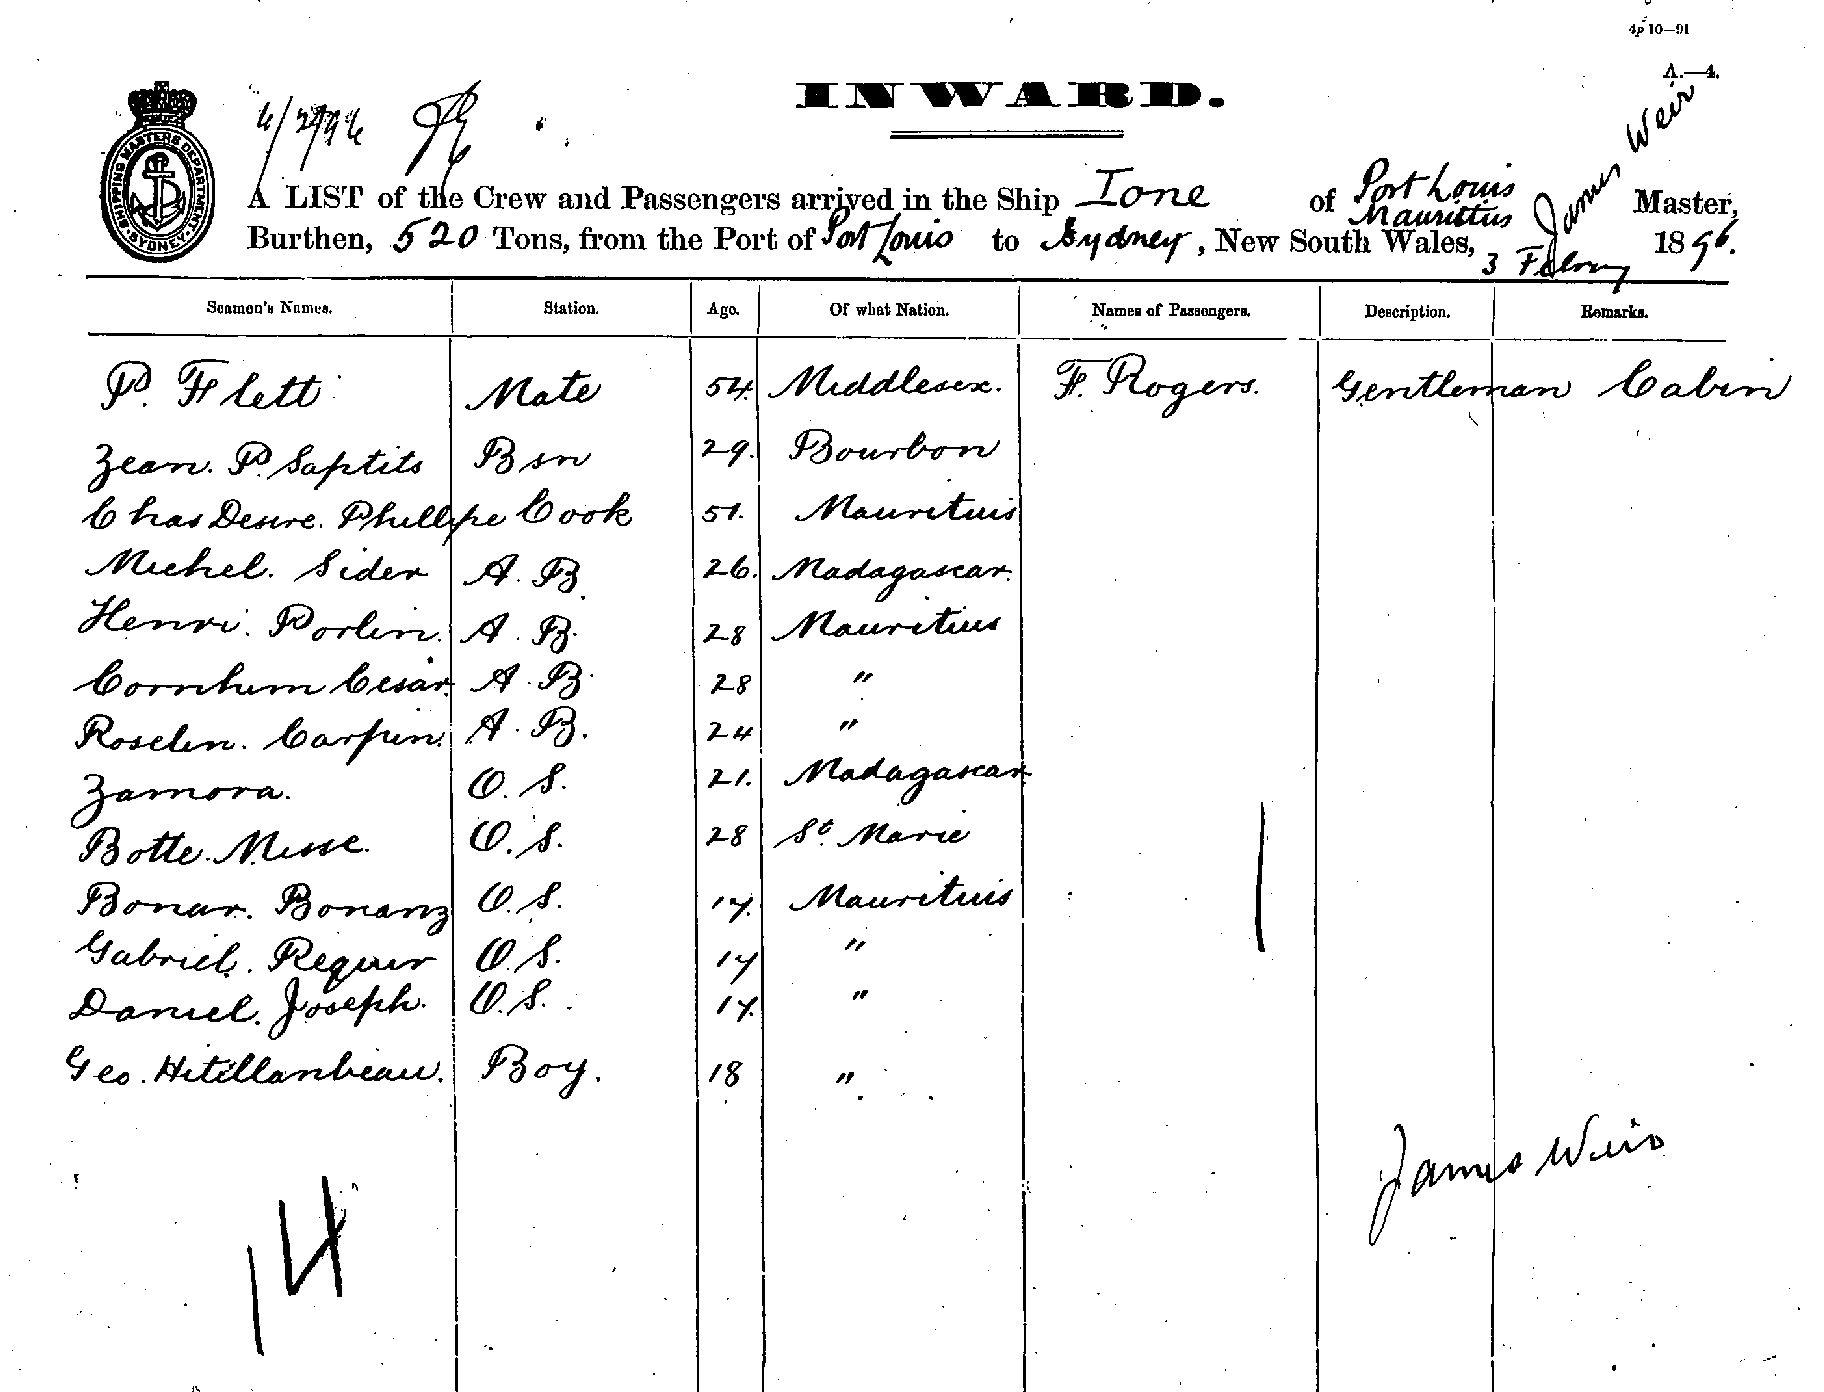 4p 10—91
A.—4.
INWARD.
6/2/96
SHIPPING MASTERS DEPARTMENT
SYDNEY
A LIST of the Crew and Passengers arrived in the Ship Ione of Port Louis Mauritius James Weir Master,
Burthen, 520 Tons, from the Port of Port Louis to Sydney, New South Wales, 3 Febry 1896.
Seamen's Names. Station. Age. Of what Nation. Names of Passengers. Description. Remarks.
P. Flett Mate 54. Middlesex. F. Rogers. Gentleman Cabin
Zean. P. Saptits Bsn 29. Bourbon
Chas Desire. Phillipe Cook 51. Mauritius
Michel. Sider A. B. 26. Madagascar.
Henri. Porlin. A. B. 28 Mauritius
Cornhum Cesar. A. B. 28 "
Roselin. Carpin. A. B. 24 "
Zamora. O. S. 21. Madagascar
Botte. Misse. O. S. 28 St. Marie
Bonar. Bonanz O. S. 17. Mauritius
Gabriel. Requir O. S. 17 "
Daniel. Joseph. O. S. 17. "
Geo. Hitillanbeau. Boy. 18 "
James Weir
14
1